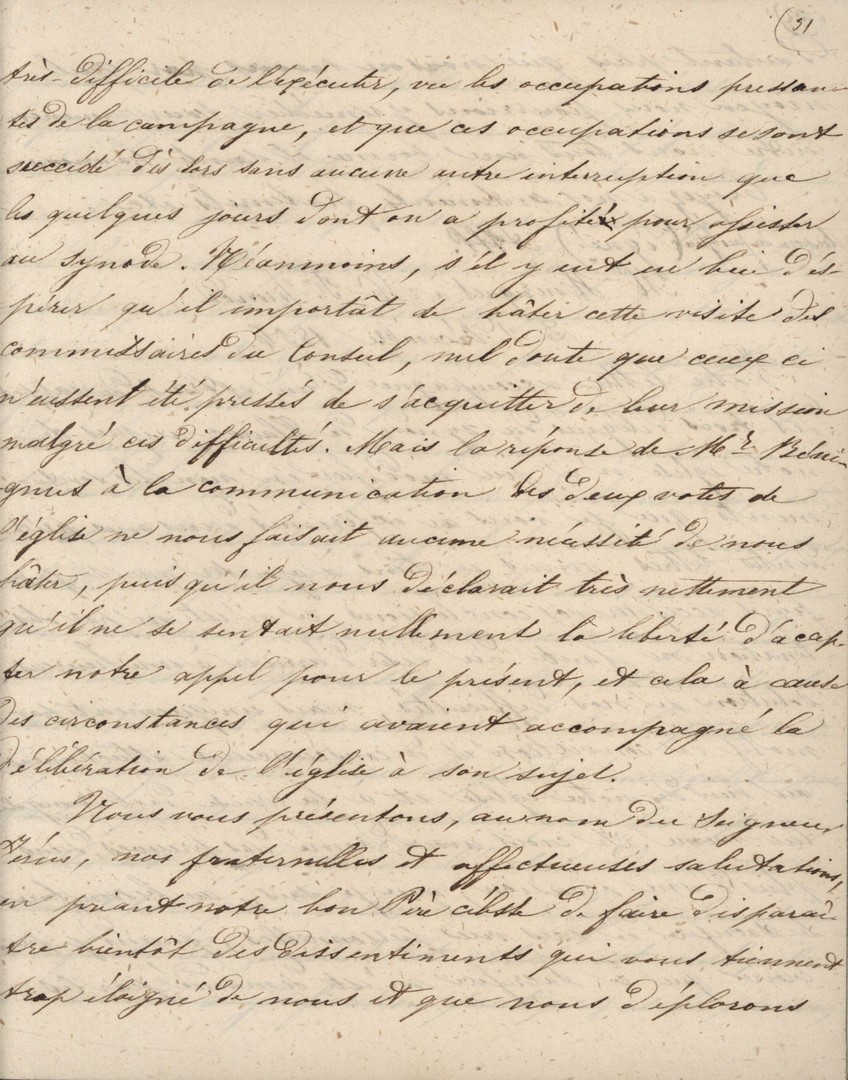 31
très-difficile de l'exécuter, vu les occupations pressan-
tes de la campagne, et que ces occupations se sont
succédé dès lors sans aucune autre interruption que
les quelques jours dont on a profité pour assister
au synode. Néanmoins, s'il y eut eu lieu d'es-
pérer qu'il importât de hâter cette visite des
commissaires du Conseil, nul doute que ceux ci
n'eussent été pressés de s'acquitter de leur mission
malgré ces difficultés. Mais la réponse de Mr. Béni-
gnus à la communication des deux votes de
l'église ne nous faisait aucune nécessité de nous
hâter, puisqu'il nous déclarait très nettement
qu'il ne se sentait nullement la liberté d'acap-
ter notre appel pour le présent, et cela à cause
des circonstances qui avaient accompagné la
délibération de l'église à son sujet.
Nous vous présentons, au nom du Seigneur
Jésus, nos fraternelles et affectueuses salutations,
en priant notre bon Père céleste de faire disparaî-
tre bientôt des dissentiments qui vous tiennent
trop éloigné de nous et que nous déplorons